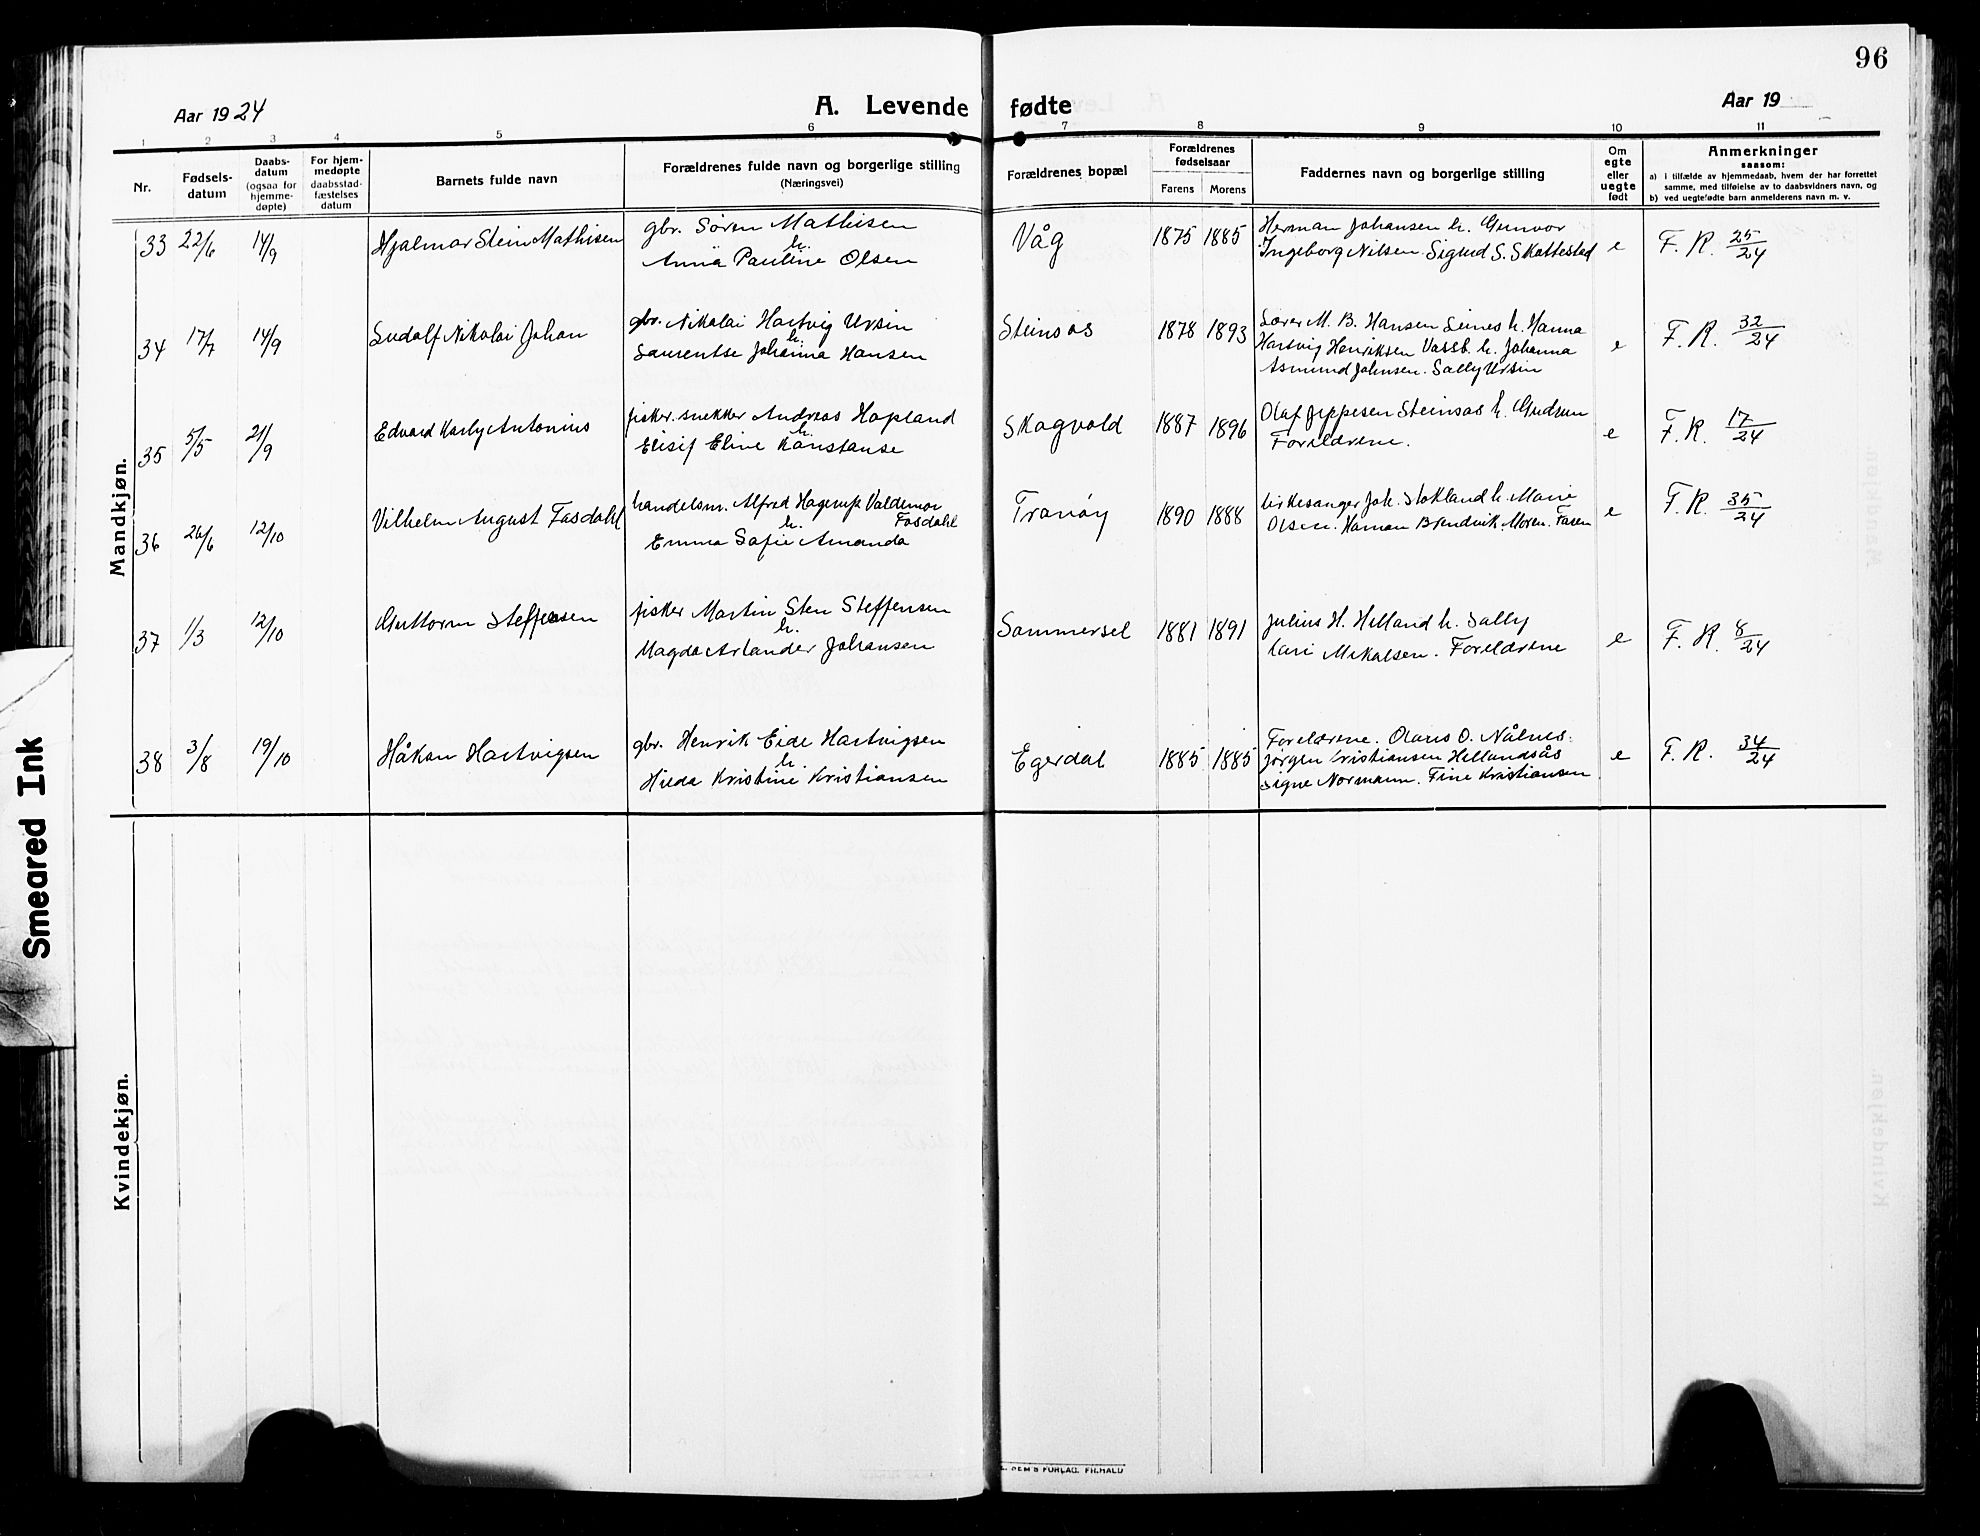 96
Aar 1924
A. Levende fødte
Aar 19
1 2 3 4 5 6 7 8 9 10 11
Nr.
Fødsels-
datum
Daabs-
datum
(ogsaa for
hjemme-
døpte)
For hjem-
medøpte
daabsstad-
fæstelses
datum
Barnets fulde navn
Forældrenes fulde navn og borgerlige stilling
(Næringsvei)
Forældrenes bopæl
Forældrenes
fødselsaar
Farens Morens
Faddernes navn og borgerlige stilling
Om
egte
eller
uegte
født
Anmerkninger
saasom:
a) i tilfælde av hjemmedaab, hvem der har forrettet
samme, med tilføielse av to daabsvidners navn, og
b) ved uegtefødte barn anmelderens navn m. v.
Mandkjøn.
33 22/6 14/9 Hjalmar Stein Mathisen
gbr. Sören Mathisen
h.
Anna Pauline Olsen
Våg 1875 1885
Herman Johansen h. Gunvor
Ingeborg Nilsen. Sigurd S. Skattestad
e F. R. 25/24
34 17/7 14/9 Ludolf Nikolai Johan
gbr. Nikolai Hartvig Ursin
h.
Laurentse Johanna Hansen
Steinsås 1878 1893
Lærer M. B. Hansen Leines h. Hanna
Hartvig Henriksen Vassb. h. Johanna
Asmund Johnsen. Sally Ursin
e F. R. 32/24
35 5/5 21/9 Edvard Karly Antonius
fisker. snekker Andreas Hopland
h.
Elisif Eline Konstanse
Skagvold 1887 1896
Olaf Jeppesen Steinsås h. Gudrun
Foreldrene.
e F. R. 17/24
36 26/6 12/10 Vilhelm August Fasdahl
handelsm. Alfred Hagerup Valdemar
Fasdahl
h.
Emma Sofie Amanda
Tranöy 1890 1888
kirkesanger Joh. Stokland h. Marie
Olsen. Haman Brendvik. Moren. Faren
e F. R. 35/24
37 1/3 12/10 Guttorm Steffensen
fisker Martin Sten Steffensen
h.
Magda Arlander Johansen
Sommersel 1881 1891
Julius H. Helland h. Sally
Kari Mikalsen. Foreldrene
e F. R. 8/24
38 3/8 19/10 Håkon Hartvigsen
gbr. Henrik Eide Hartvigsen
h.
Hilda Kristine Kristiansen
Egerdal 1885 1885
Foreldrene. Olaus O. Nålnes.
Jörgen Kristiansen Hellandsås
Signe Normann. Fine Kristiansen
e F. R. 34/24
Kvindekjøn.
Smeared Ink